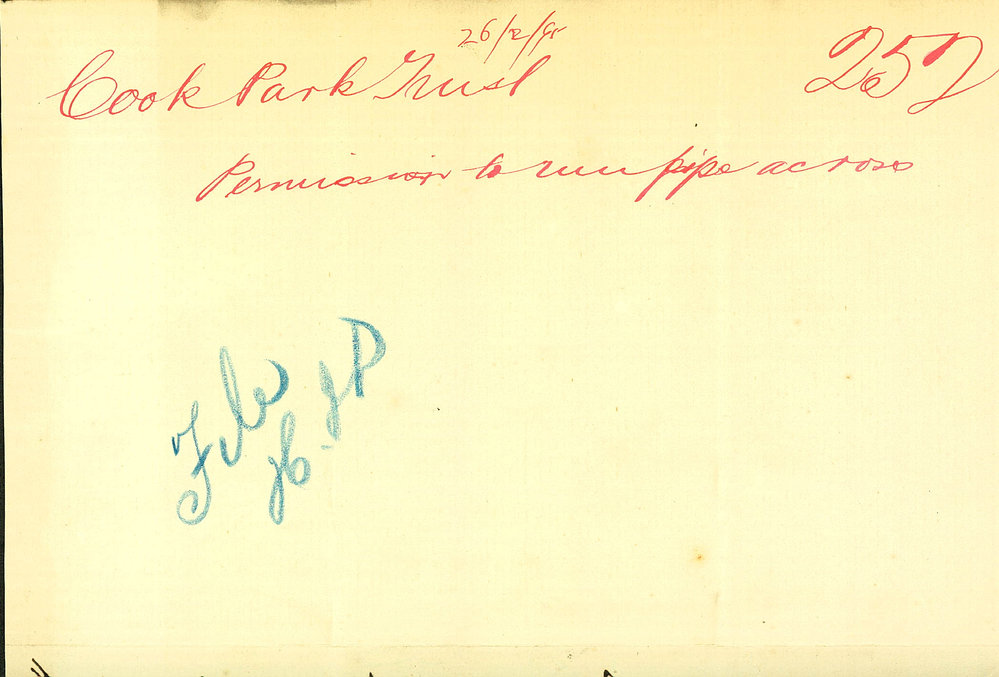 26/2/95
Cook Park Trust
257
Permission to run pipe across
File